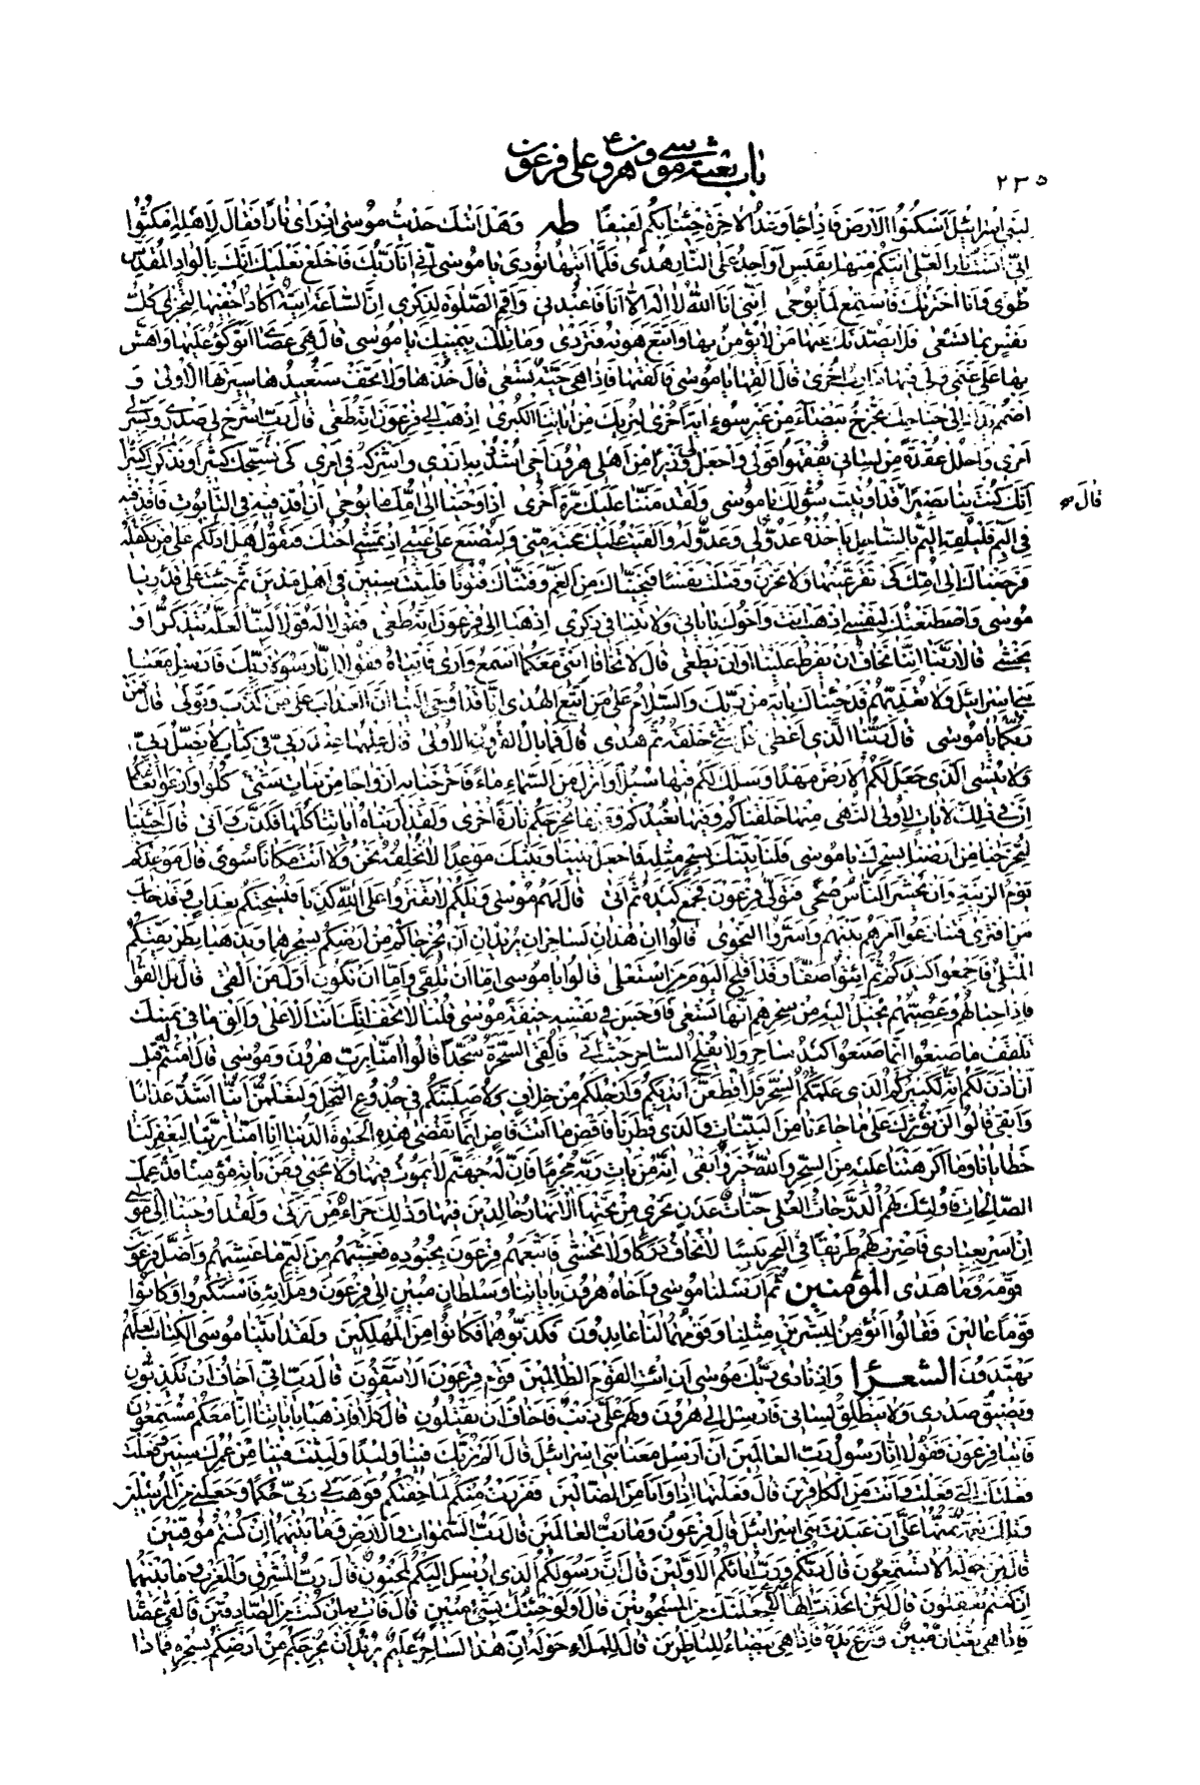 باب بعثة موسى و هرون ع على فرعون
٢٣٥
لبني إسرائيل اسكنوا الأرض فإذا جاء وعد الآخرة جئنا بكم لفيفا طه وهل أتاك حديث موسى إذ رأى نارا فقال لأهله امكثوا
إني آنست نارا لعلي آتيكم منها بقبس أو أجد على النار هدى فلما أتيها نودي يا موسى إني أنا ربك فاخلع نعليك إنك بالواد المقدس
طوى وأنا اخترتك فاستمع لما يوحى إنني أنا الله لا إله إلا أنا فاعبدني وأقم الصلوة لذكري إن الساعة آتية أكاد أخفيها لتجزى كل
نفس بما تسعى فلا يصدنك عنها من لا يؤمن بها واتبع هويه فتردى وما تلك بيمينك يا موسى قال هي عصا أتوكؤ عليها وأهش
بها على غنمي ولي فيها مآرب أخرى قال ألقها يا موسى فألقيها فإذا هي حية تسعى قال خذها ولا تخف سنعيدها سيرتها الأولى و
اضمم يدك إلى جناحك تخرج بيضاء من غير سوء آية أخرى لنريك من آياتنا الكبرى اذهب إلى فرعون إنه طغى قال رب اشرح لي صدري ويسر لي
أمري واحلل عقدة من لساني يفقهوا قولي واجعل لي وزيرا من أهلي هرون أخي اشدد به أزري وأشركه في أمري كي نسبحك كثيرا ونذكرك كثيرا
إنك كنت بنا بصيرا قد أوتيت سؤلك يا موسى ولقد مننا عليك مرة أخرى إذ أوحينا إلى أمك ما يوحى أن اقذفيه في التابوت فاقذفيه
قال صح
في اليم فليلقه اليم بالساحل يأخذه عدو لي وعدو له وألقيت عليك محبة مني ولتصنع على عيني إذ تمشي أختك فتقول هل أدلكم على من يكفله
فرجعناك إلى أمك كي تقر عينها ولا تحزن وقتلت نفسا فنجيناك من الغم وفتناك فتونا فلبثت سنين في أهل مدين ثم جئت على قدر يا
موسى واصطنعتك لنفسي اذهب أنت وأخوك بآياتي ولا تنيا في ذكري اذهبا إلى فرعون إنه طغى فقولا له قولا لينا لعله يتذكر أو
يخشى قالا ربنا إننا نخاف أن يفرط علينا أو أن يطغى قال لا تخافا إنني معكما أسمع وأرى فأتياه فقولا إنا رسولا ربك فأرسل معنا
بني إسرائيل ولا تعذبهم قد جئناك بآية من ربك والسلام على من اتبع الهدى إنا قد أوحي إلينا أن العذاب على من كذب وتولى قال فمن
ربكما يا موسى قال ربنا الذي أعطى كل شيء خلقه ثم هدى قال فما بال القرون الأولى قال علمها عند ربي في كتاب لا يضل ربي
ولا ينسى الذي جعل لكم الأرض مهدا وسلك لكم فيها سبلا وأنزل من السماء ماء فأخرجنا به أزواجا من نبات شتى كلوا وارعوا أنعامكم
إن في ذلك لآيات لأولي النهى منها خلقناكم وفيها نعيدكم ومنها نخرجكم تارة أخرى ولقد أريناه آياتنا كلها فكذب وأبى قال أجئتنا
لتخرجنا من أرضنا بسحرك يا موسى فلنأتينك بسحر مثله فاجعل بيننا وبينك موعدا لا نخلفه نحن ولا أنت مكانا سوى قال موعدكم
يوم الزينة وأن يحشر الناس ضحى فتولى فرعون فجمع كيده ثم أتى قال لهم موسى ويلكم لا تفتروا على الله كذبا فيسحتكم بعذاب وقد خاب
من افترى فتنازعوا أمرهم بينهم وأسروا النجوى قالوا إن هذان لساحران يريدان أن يخرجاكم من أرضكم بسحرهما ويذهبا بطريقتكم
المثلى فأجمعوا كيدكم ثم ائتوا صفا وقد أفلح اليوم من استعلى قالوا يا موسى إما أن تلقي وإما أن نكون أول من ألقى قال بل ألقوا
فإذا حبالهم وعصيهم يخيل إليه من سحرهم أنها تسعى فأوجس في نفسه خيفة موسى قلنا لا تخف إنك أنت الأعلى وألق ما في يمينك
تلقف ما صنعوا إنما صنعوا كيد ساحر ولا يفلح الساحر حيث أتى فألقي السحرة سجدا قالوا آمنا برب هرون وموسى قال آمنتم له قبل
أن آذن لكم إنه لكبيركم الذي علمكم السحر فلأقطعن أيديكم وأرجلكم من خلاف ولأصلبنكم في جذوع النخل ولتعلمن أينا أشد عذابا
وأبقى قالوا لن نؤثرك على ما جاءنا من البينات والذي فطرنا فاقض ما أنت قاض إنما تقضي هذه الحيوة الدنيا إنا آمنا بربنا ليغفر لنا
خطايانا وما أكرهتنا عليه من السحر والله خير وأبقى إنه من يأت ربه مجرما فإن له جهنم لا يموت فيها ولا يحيى ومن يأته مؤمنا قد عمل
الصالحات فأولئك لهم الدرجات العلى جنات عدن تجري من تحتها الأنهار خالدين فيها وذلك جزاء من تزكى ولقد أوحينا إلى موسى
أن أسر بعبادي فاضرب لهم طريقا في البحر يبسا لا تخاف دركا ولا تخشى فأتبعهم فرعون بجنوده فغشيهم من اليم ما غشيهم وأضل فرعون
قومه وما هدى المؤمنين ثم أرسلنا موسى وأخاه هرون بآياتنا وسلطان مبين إلى فرعون وملائه فاستكبروا وكانوا
قوما عالين فقالوا أنؤمن لبشرين مثلنا وقومهما لنا عابدون فكذبوهما فكانوا من المهلكين ولقد آتينا موسى الكتاب لعلهم
يهتدون الشعرا وإذ نادى ربك موسى أن ائت القوم الظالمين قوم فرعون ألا يتقون قال رب إني أخاف أن يكذبون
ويضيق صدري ولا ينطلق لساني فأرسل إلى هرون ولهم علي ذنب فأخاف أن يقتلون قال كلا فاذهبا بآياتنا إنا معكم مستمعون
فأتيا فرعون فقولا إنا رسول رب العالمين أن أرسل معنا بني إسرائيل قال ألم نربك فينا وليدا ولبثت فينا من عمرك سنين وفعلت
فعلتك التي فعلت وأنت من الكافرين قال فعلتها إذا وأنا من الضالين ففررت منكم لما خفتكم فوهب لي ربي حكما وجعلني من المرسلين
وتلك نعمة تمنها علي أن عبدت بني إسرائيل قال فرعون وما رب العالمين قال رب السموات والأرض وما بينهما إن كنتم موقنين
قال لمن حوله ألا تستمعون قال ربكم ورب آبائكم الأولين قال إن رسولكم الذي أرسل إليكم لمجنون قال رب المشرق والمغرب وما بينهما
إن كنتم تعقلون قال لئن اتخذت إلها غيري لأجعلنك من المسجونين قال أولو جئتك بشيء مبين قال فأت به إن كنت من الصادقين فألقى عصاه
فإذا هي ثعبان مبين ونزع يده فإذا هي بيضاء للناظرين قال للملاء حوله إن هذا لساحر عليم يريد أن يخرجكم من أرضكم بسحره فماذا